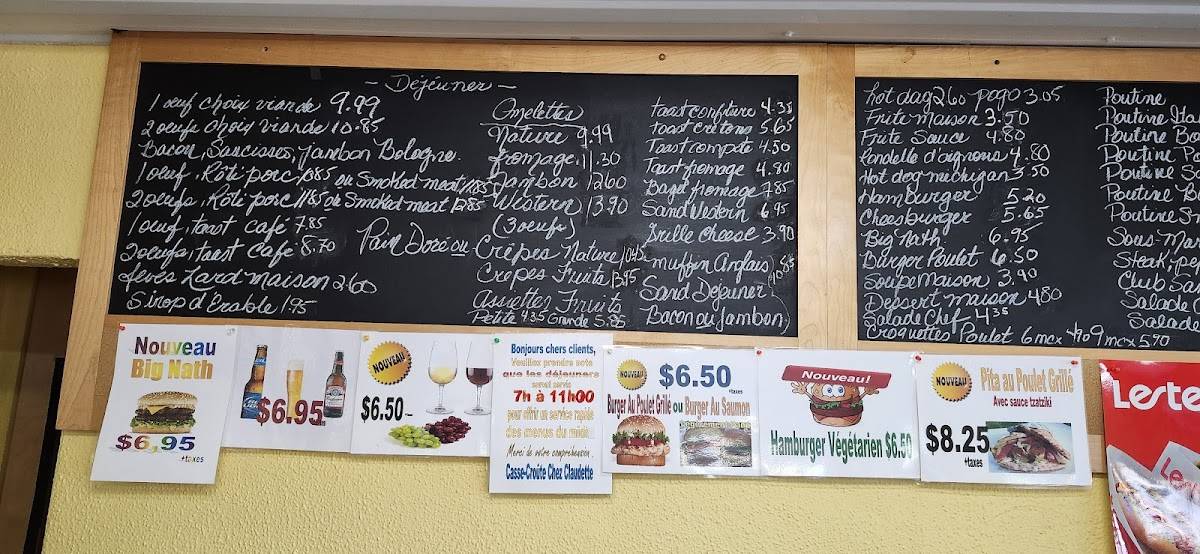 - Déjeuner -
1 oeuf choix viande 9.99
2 oeufs choix viande 10.85
Bacon, Saucisses, jambon Bologne.
1 oeuf, Rôti porc 10.85 ou Smoked meat 11.85
2 oeufs, Rôti porc 11.85 ou Smoked meat 12.85
1 oeuf, toast café 7.85
2 oeufs, toast café 8.70
Fèves Lard maison 2.60
Sirop d'Erable 1.95
Pain Doré ou
Omelettes
Nature 9.99
fromage 11.30
Jambon 12.60
Western 13.90
(3 oeufs)
Crêpes Nature
Crêpes Fruits 13.95
Assiettes Fruits
Petite 4.35 Grande 5.95
toast confiture 4.35
toast cretons 5.65
Toast compote 4.50
Toast fromage 4.80
Bagel fromage 7.85
Sand Western 6.95
Grille cheese 3.90
muffin Anglais
Sand Dejeuner
Bacon ou Jambon
10.85
hot dog 2.60 pogo 3.05
Frite maison 3.50
Frite Sauce 4.80
Rondelle d'oignons 4.80
Hot dog michigan 3.50
Hamburger 5.20
Cheesburger 5.65
Big Nath 6.95
Burger Poulet 6.50
Soupe maison 3.90
Dessert maison 4.80
Salade Chef 4.35
Croquettes Poulet 6 mcx 4.70 9 mcx 5.90
Poutine
Poutine Ita
Poutine
Poutine
Poutine
Poutine
Poutine
Sous-Ma
Steak,
Club Sa
Salade
Salade
Nouveau
Big Nath
$6,95
+taxes
$6.95
NOUVEAU
$6.50
Bonjours chers clients,
Veuillez prendre note
que les déjeuners
seront servis
7h à 11h00
pour offrir un service rapide
des menus du midi.
Merci de votre compréhension.
Casse-Croûte Chez Claudette
NOUVEAU
$6.50
+taxes
Burger Au Poulet Grillé ou Burger Au Saumon
Nouveau!
Hamburger Végétarien $6.50
NOUVEAU
Pita au Poulet Grillé
Avec sauce tzatziki
$8.25
+taxes
Leste
Le